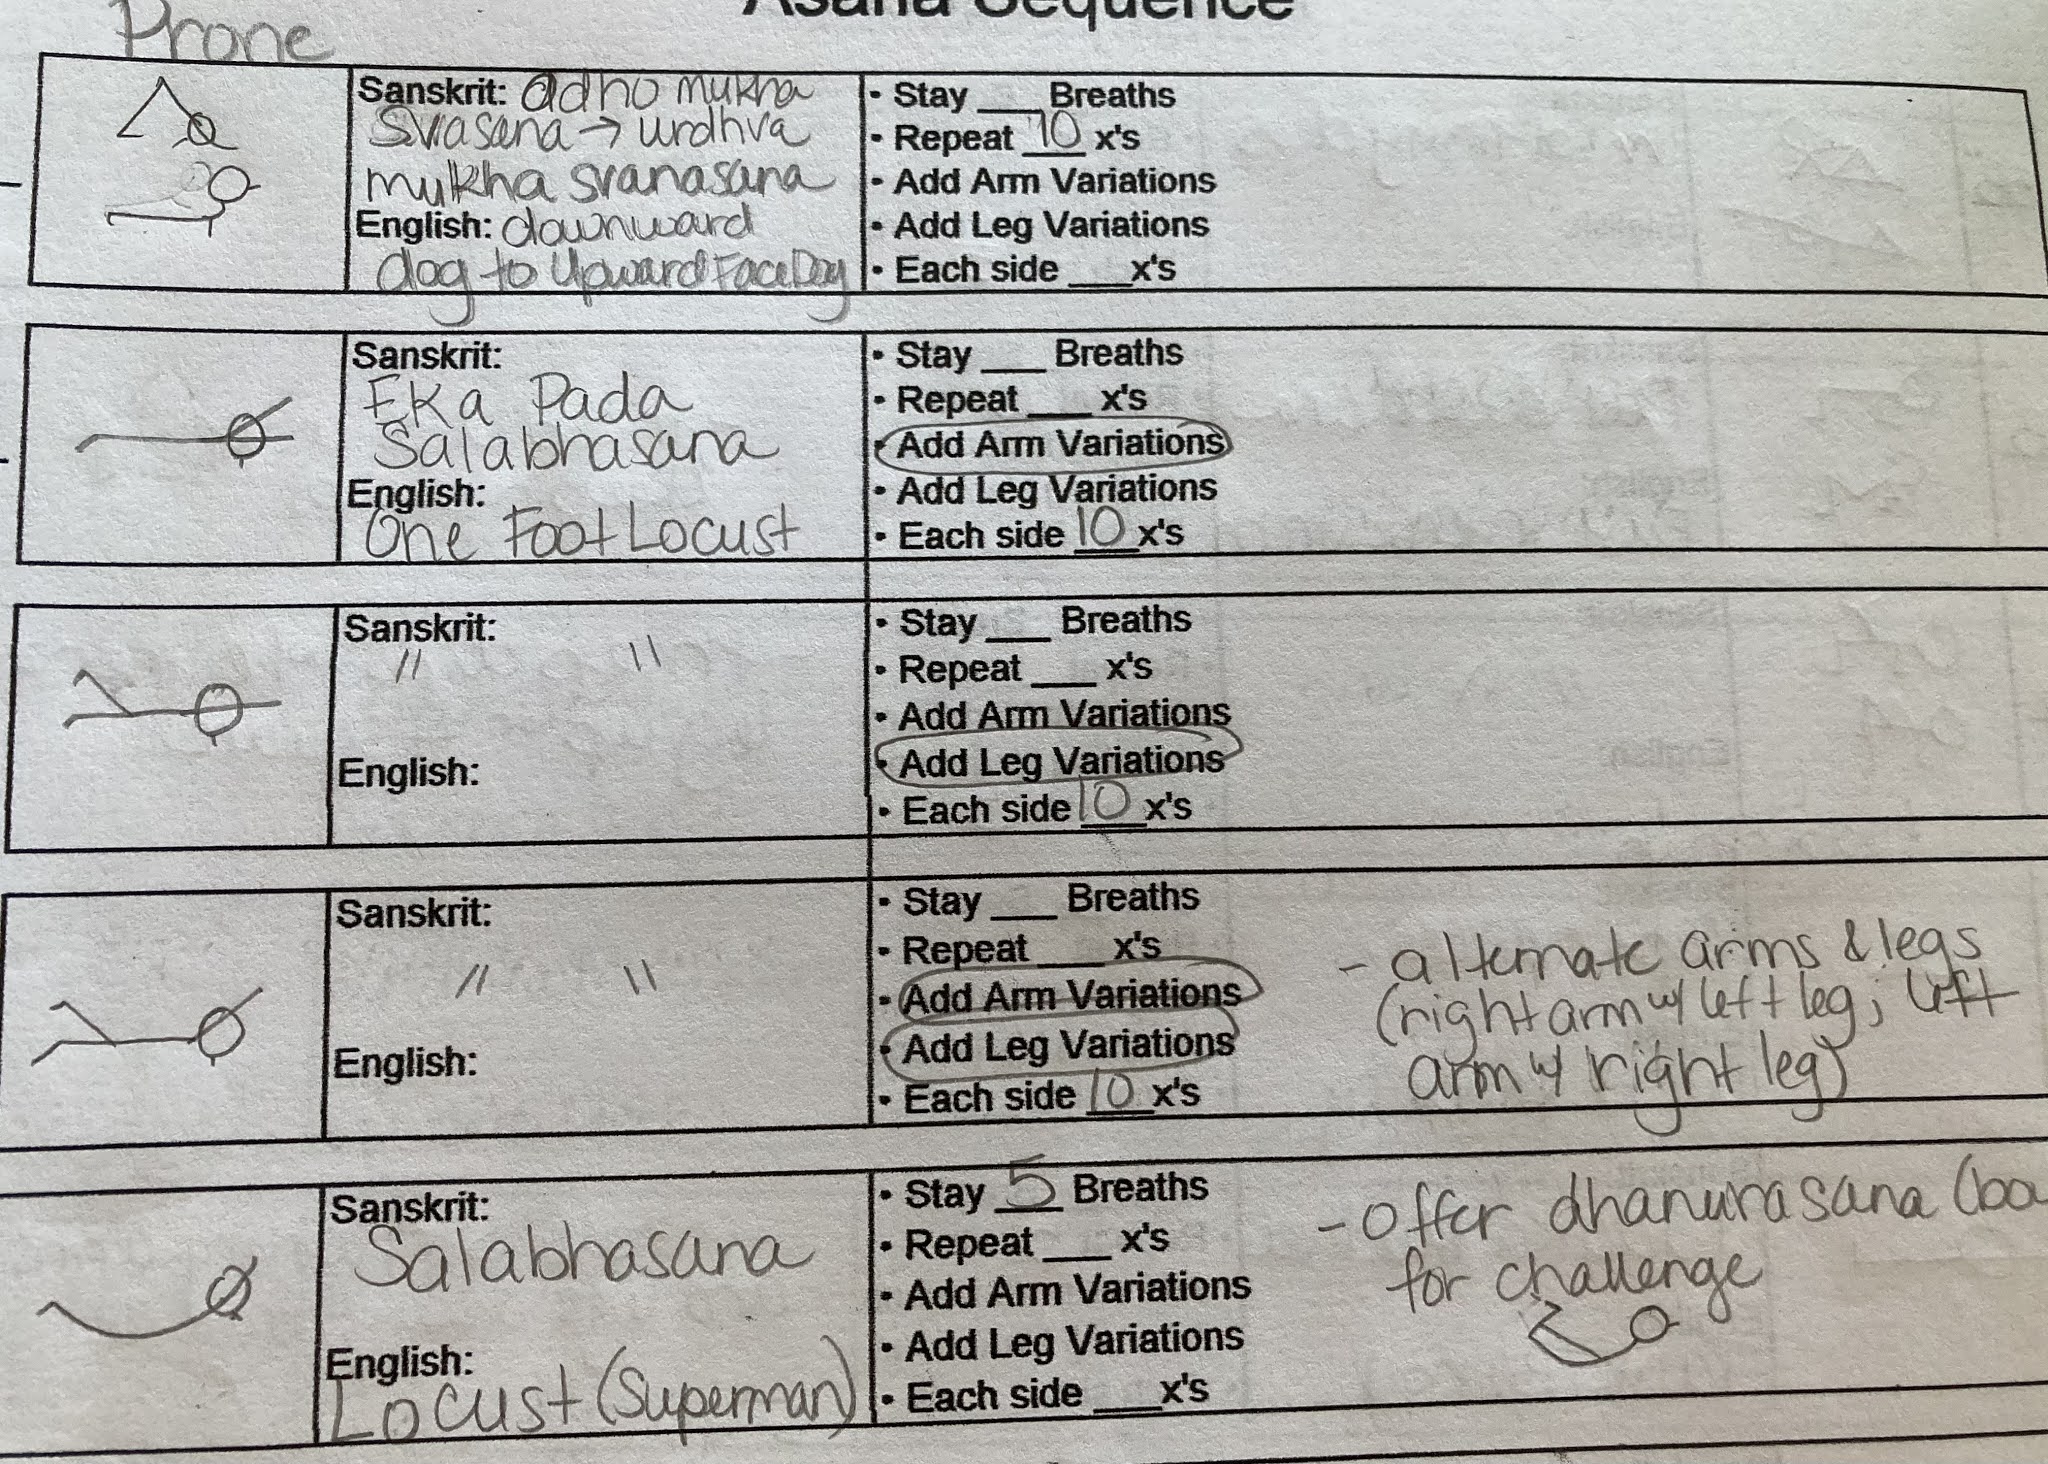 Asana Sequence
Prone
Sanskrit: adho mukha
Svasana → urdhva
mukha svanasana
English: downward
dog to Upward Face Dog
• Stay ___ Breaths
• Repeat 10 x's
• Add Arm Variations
• Add Leg Variations
• Each side ___x's
Sanskrit:
Eka Pada
Salabhasana
English:
One Foot Locust
• Stay ___ Breaths
• Repeat ___ x's
• Add Arm Variations
• Add Leg Variations
• Each side 10 x's
Sanskrit:
" "
English:
• Stay ___ Breaths
• Repeat ___ x's
• Add Arm Variations
• Add Leg Variations
• Each side 10 x's
Sanskrit:
" "
English:
• Stay ___ Breaths
• Repeat ___ x's
• Add Arm Variations
• Add Leg Variations
• Each side 10 x's
- alternate arms & legs
(right arm w/ left leg; left
arm w/ right leg)
Sanskrit:
Salabhasana
English:
Locust (Superman)
• Stay 5 Breaths
• Repeat ___ x's
• Add Arm Variations
• Add Leg Variations
• Each side ___x's
- Offer dhanurasana (bo
for challenge